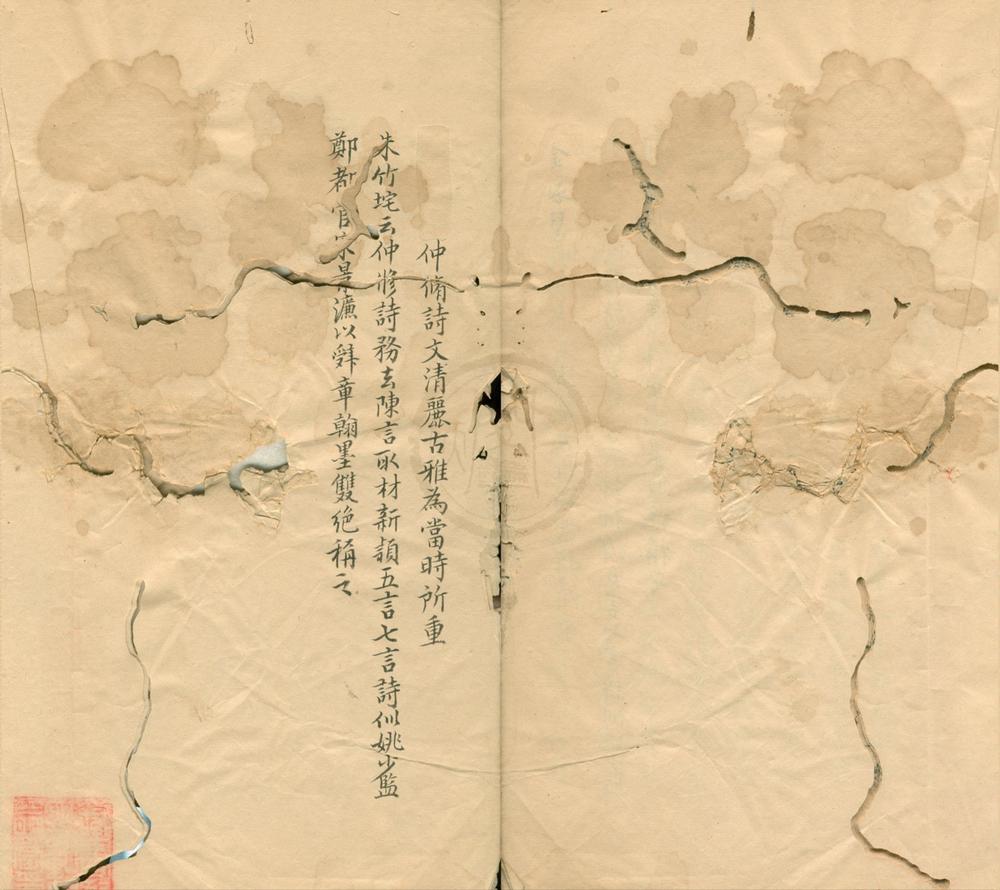 仲脩詩文清麗古雅為當時所重
朱竹垞云仲脩詩務去陳言取材新頴五言七言詩似姚少監
鄭都官宋景濂以辤章翰墨雙绝稱之